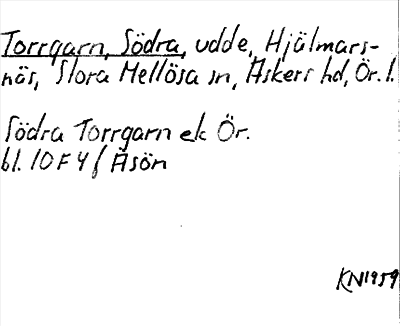 Torrgarn, Södra, udde, Hjälmars-
näs, Stora Mellösa sn, Askers hd, Ör. l.
Södra Torrgarn ek Ör.
bl. 10 F 4 f Äsön
KN 1959